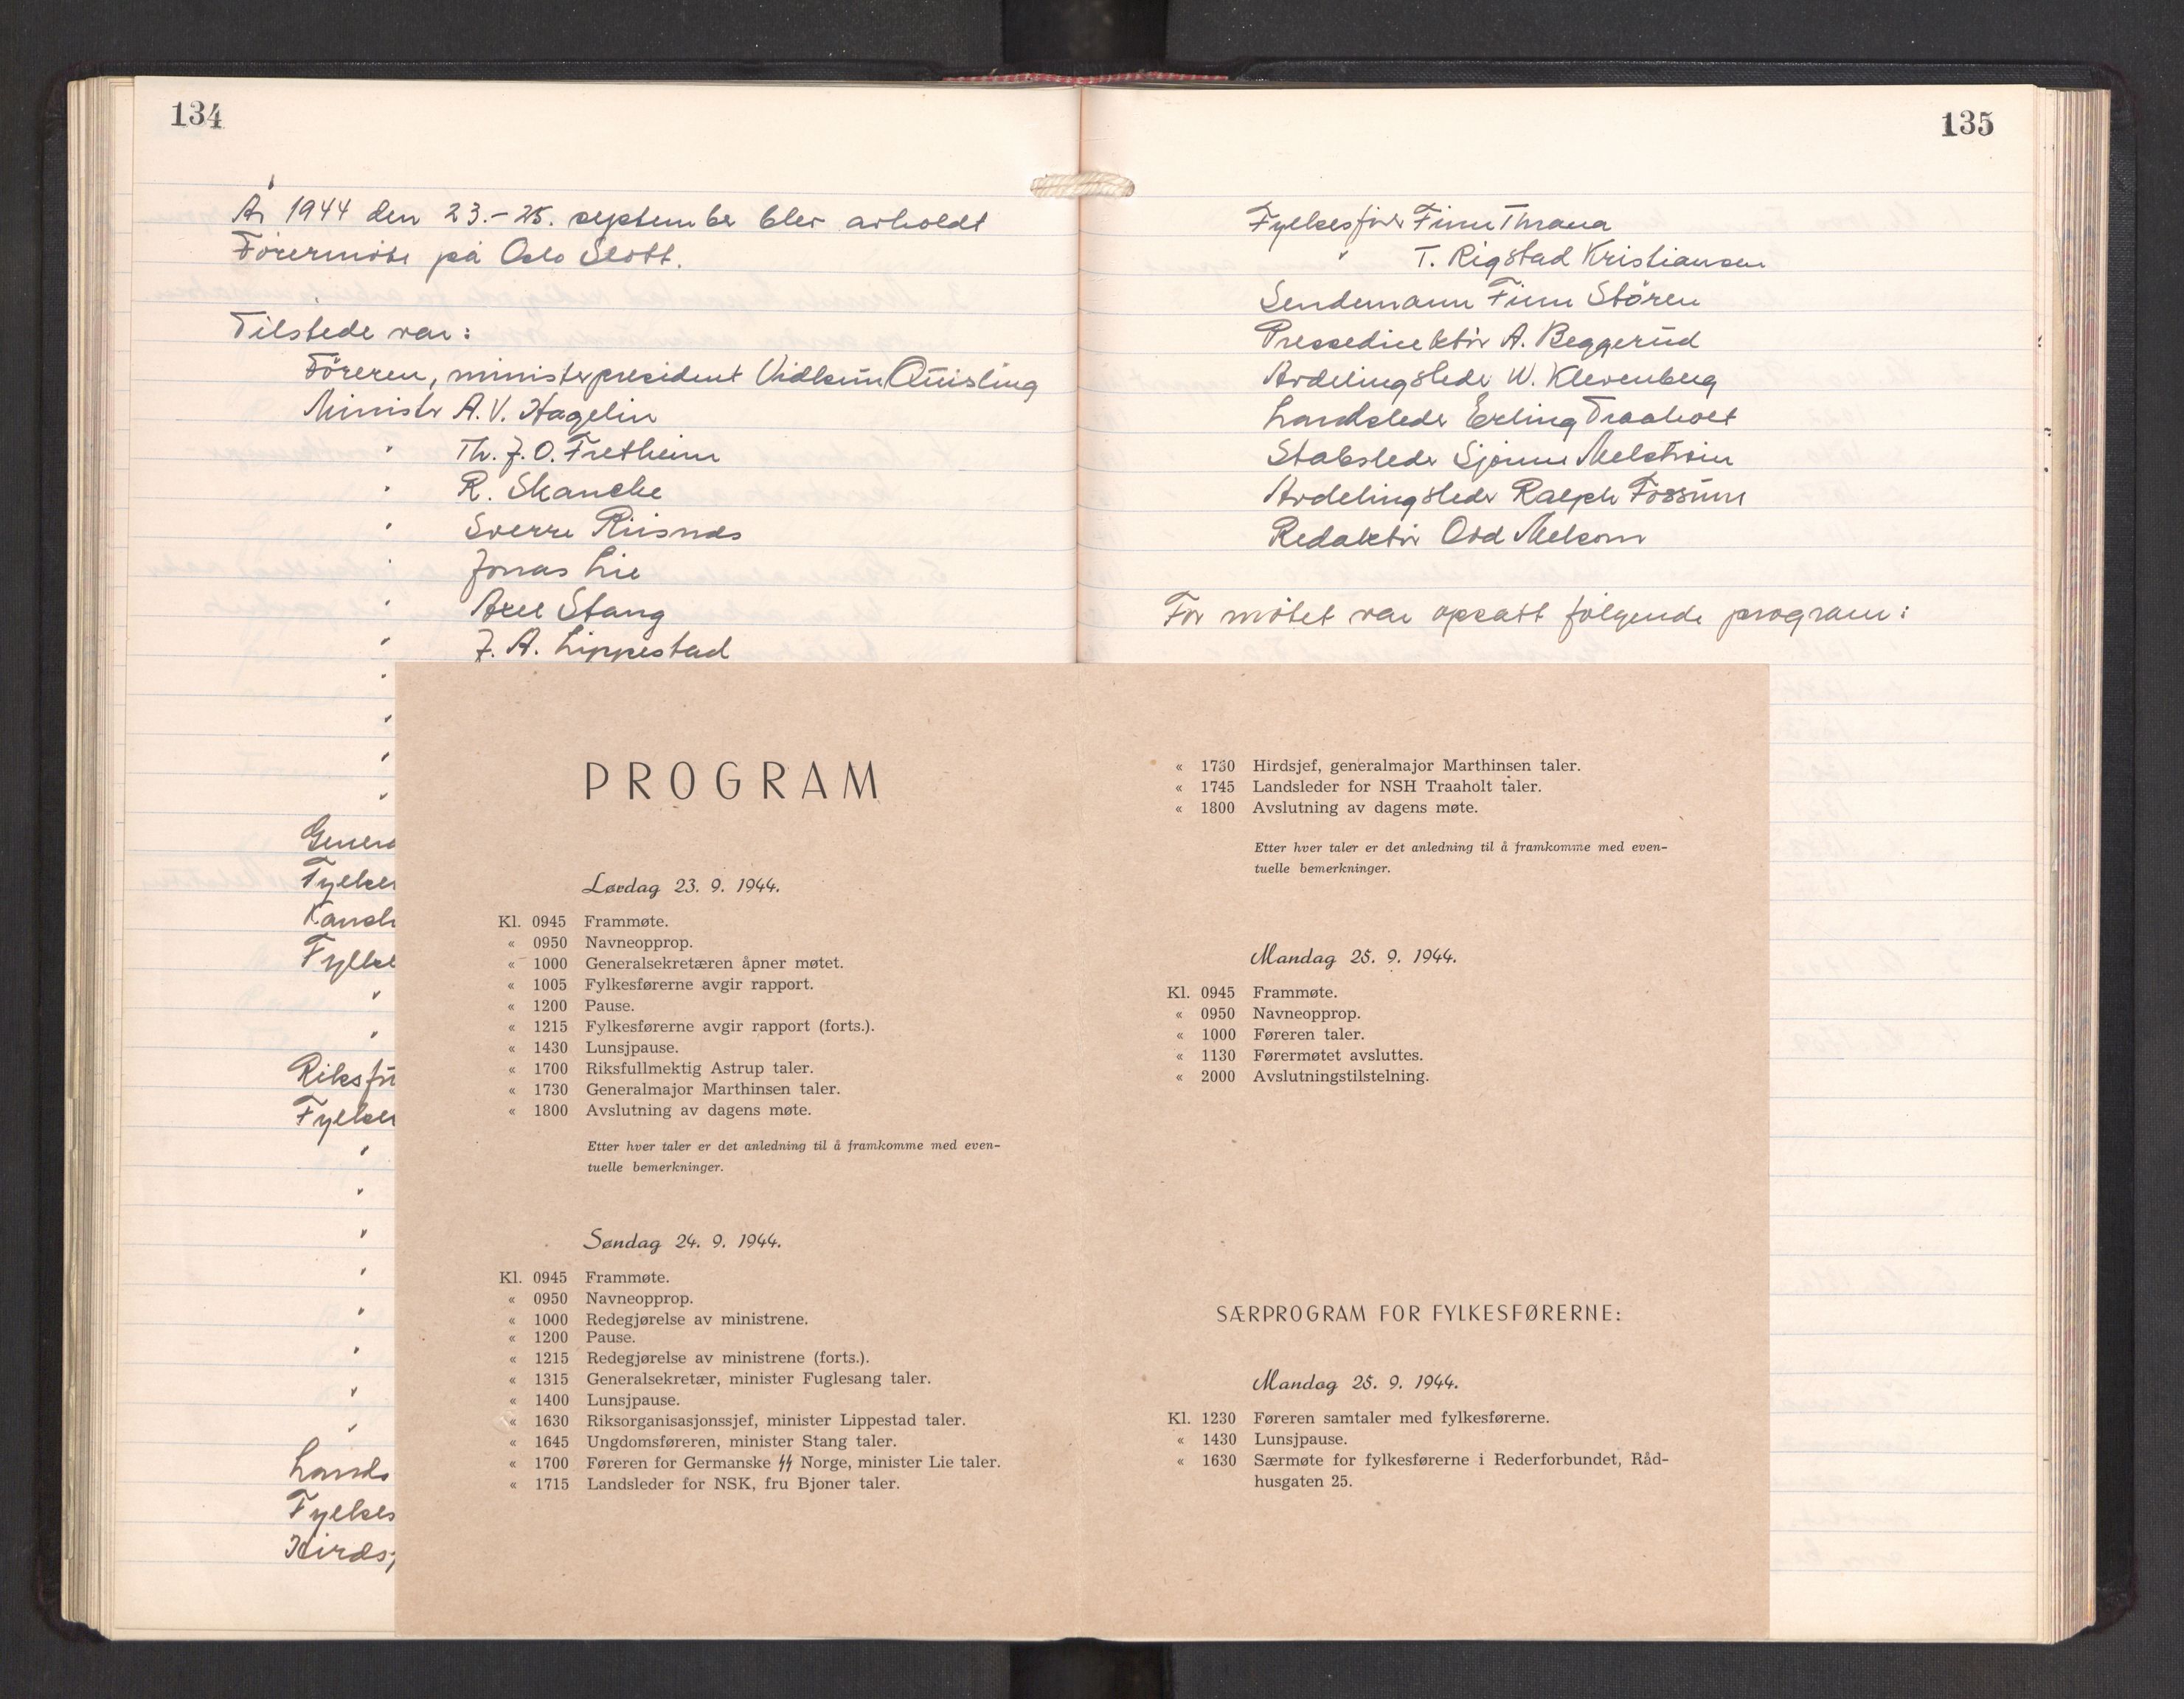 134
År 1944 den 23.-25. september blev avholdt
Førermøte på Oslo Slott.
Tilstede var:
Føreren, ministerpresident Vidkun Quisling
Minister A. V. Hagelin
" Th. J. O. Fretheim
" R. Skancke
" Sverre Riisnæs
" Jonas Lie
" Axel Stang
" J. A. Lippestad
"
"
"
"
Genera
Fylkes
Kansle
Fylke
"
"
Riksfu
Fylkes
"
"
"
"
"
"
"
"
Lands
Fylkes
Hirdsj
135
Fylkesfører Finn Thrana
" T. Rigstad Kristiansen
Sendemann Finn Støren
Pressedirektør A. Beggerud
Avdelingsleder W. Klevenberg
Landsleder Erling Traaholt
Stabsleder Sjønne Melstrøm
Avdelingsleder Ralph Fossum
Redaktør Odd Melsom
For møtet var opsatt følgende program:
PROGRAM
Lørdag 23. 9. 1944.
Kl. 0945 Frammøte.
« 0950 Navneopprop.
« 1000 Generalsekretæren åpner møtet.
« 1005 Fylkesførerne avgir rapport.
« 1200 Pause.
« 1215 Fylkesførerne avgir rapport (forts.).
« 1430 Lunsjpause.
« 1700 Riksfullmektig Astrup taler.
« 1730 Generalmajor Marthinsen taler.
« 1800 Avslutning av dagens møte.
Etter hver taler er det anledning til å framkomme med even-
tuelle bemerkninger.
Søndag 24. 9. 1944.
Kl. 0945 Frammøte.
« 0950 Navneopprop.
« 1000 Redegjørelse av ministrene.
« 1200 Pause.
« 1215 Redegjørelse av ministrene (forts.).
« 1315 Generalsekretær, minister Fuglesang taler.
« 1400 Lunsjpause.
« 1630 Riksorganisasjonssjef, minister Lippestad taler.
« 1645 Ungdomsføreren, minister Stang taler.
« 1700 Føreren for Germanske ᛋᛋ Norge, minister Lie taler.
« 1715 Landsleder for NSK, fru Bjoner taler.
« 1730 Hirdsjef, generalmajor Marthinsen taler.
« 1745 Landsleder for NSH Traaholt taler.
« 1800 Avslutning av dagens møte.
Etter hver taler er det anledning til å framkomme med even-
tuelle bemerkninger.
Mandag 25. 9. 1944.
Kl. 0945 Frammøte.
« 0950 Navneopprop.
« 1000 Føreren taler.
« 1130 Førermøtet avsluttes.
« 2000 Avslutningstilstelning.
SÆRPROGRAM FOR FYLKESFØRERNE:
Mandag 25. 9. 1944.
Kl. 1230 Føreren samtaler med fylkesførerne.
« 1430 Lunsjpause.
« 1630 Særmøte for fylkesførerne i Rederforbundet, Råd-
husgaten 25.